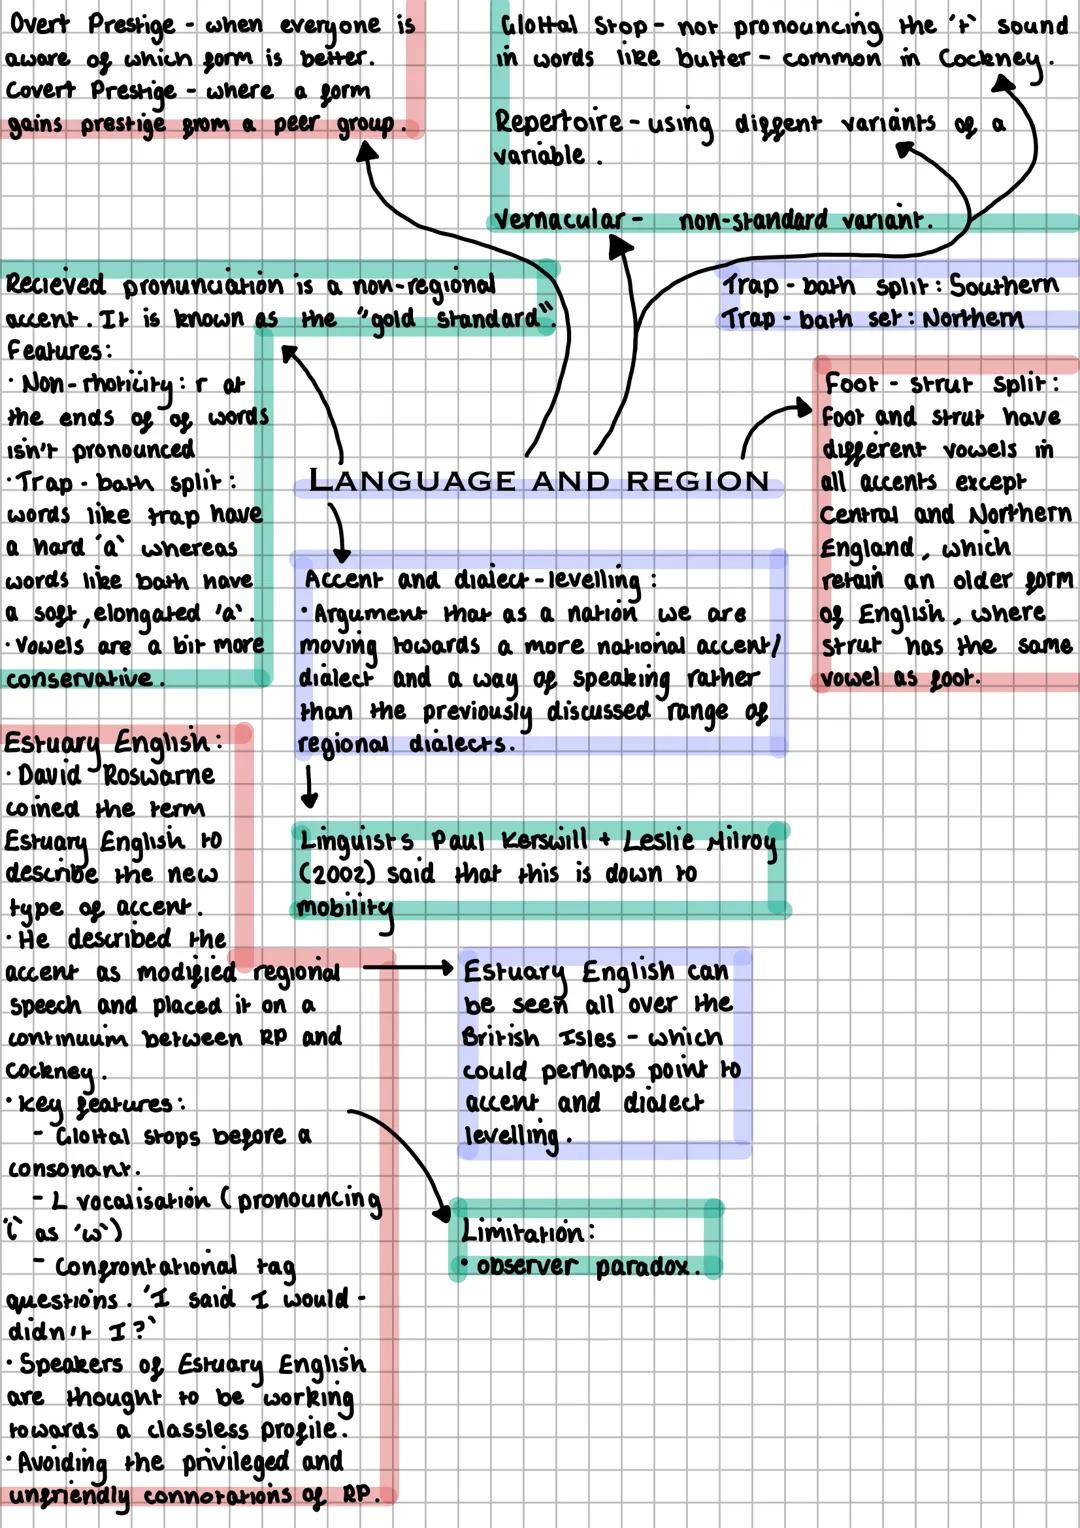 Overt Prestige - when everyone is
aware of which form is better.
Covert Prestige - where a form
gains prestige from a peer group.
Glottal Stop - not pronouncing the 't' sound
in words like butter - common in Cockney.
Repertoire - using diffent variants of a
variable.
Vernacular - non-standard variant.
Recieved pronunciation is a non-regional
accent. It is known as the "gold standard".
Features:
· Non-rhoticity: r at
the ends of of words
isn't pronounced
· Trap - bath split:
words like trap have
a hard 'a' whereas
words like bath have
a soft, elongated 'a'.
· Vowels are a bit more
conservative.
Trap - bath split: Southern
Trap - bath set: Northern
Foot - strut split:
Foot and strut have
different vowels in
all accents except
Central and Northern
England, which
retain an older form
of English, where
strut has the same
vowel as foot.
LANGUAGE AND REGION
Accent and dialect-levelling:
· Argument that as a nation we are
moving towards a more national accent/
dialect and a way of speaking rather
than the previously discussed range of
regional dialects.
Linguists Paul Kerswill + Leslie Milroy
(2002) said that this is down to
mobility
Estuary English:
· David Roswarne
coined the term
Estuary English to
describe the new
type of accent.
· He described the
accent as modified regional
speech and placed it on a
continuum between RP and
Cockney.
· Key features:
- Glottal stops before a
consonant.
- L vocalisation (pronouncing
'l' as 'w')
- Confrontational tag
questions. 'I said I would -
didn't I?'
· Speakers of Estuary English
are thought to be working
towards a classless profile.
· Avoiding the privileged and
unfriendly connotations of RP.
Estuary English can
be seen all over the
British Isles - which
could perhaps point to
accent and dialect
levelling.
Limitation:
· observer paradox.